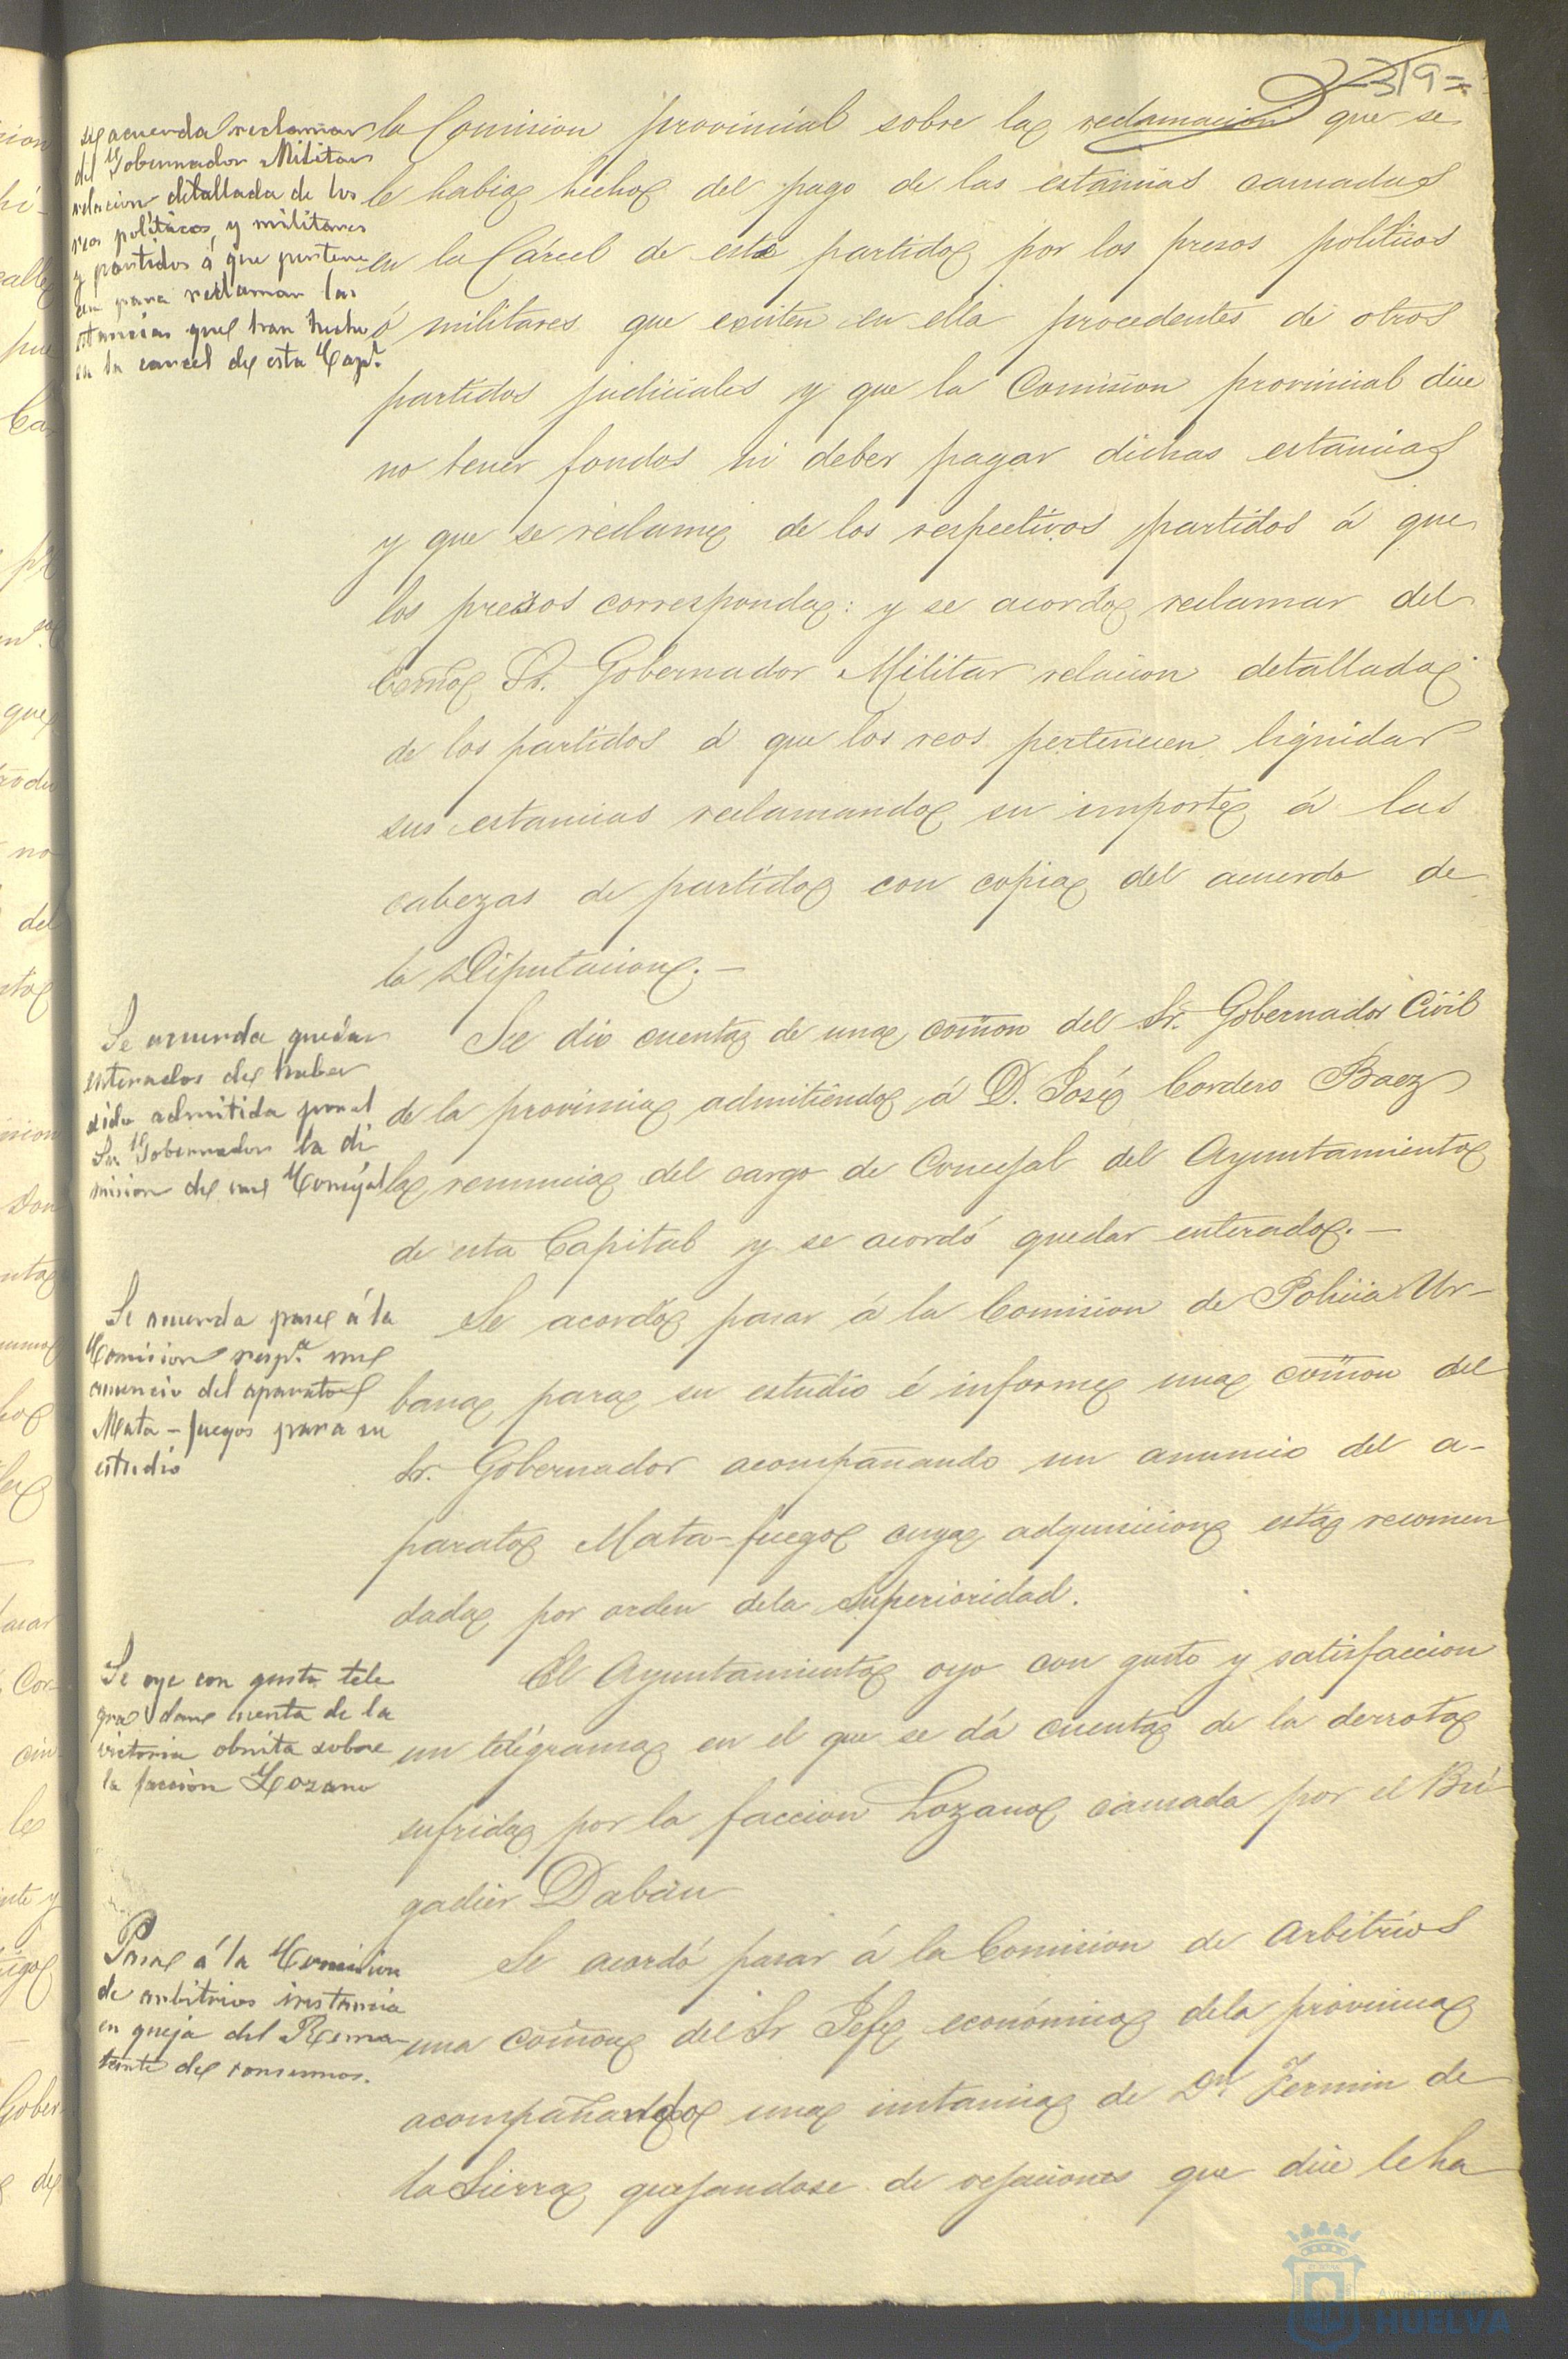 319=
Se acuerda reclamar
del Gobernador Militar
relacion detallada de los
reos politicos y militares
y partidos á que pertene
cen para reclamar las
estancias que han hecho
en la carcel de esta Capl.
la Comision provincial sobre la reclamacion que se
le habia hecho del pago de las estancias causadas
en la Cárcel de este partido por los presos politicos
ó militares que existen en ella procedentes de otros
partidos judiciales y que la Comision provincial dice
no tener fondos ni deber pagar dichas estancias
y que se reclame de los respectivos partidos á que
los presos corresponda: y se acordo reclamar del
Sr. Gobernador Militar relacion detallada
de los partidos á que los reos pertenecen liquidar
sus estancias reclamando su importe á las
cabezas de partido con copia del acuerdo de
la Diputacion.—
Se acuerda quedar
enterados de haber
sido admitida por el
Sr Gobernador la di
mision de un Concejal
Se dio cuenta de una comon del Sr. Gobernador Civil
de la provincia admitiendo á D. José Cordero Baez
la renuncia del cargo de Concejal del Ayuntamiento
de esta Capital y se acordó quedar enterado.—
Se acuerda pase á la
Comision respva. un
anuncio del aparato
Mata-fuegos para su
estudio
Se acordó pasar á la Comision de Policia Ur-
bana para su estudio é informe una comon del
Sr. Gobernador acompañando un anuncio del a-
parato Mata-fuego cuya adquisicion está recomen
dada por orden dela Superioridad.
Se oye con gusto tele
grama dando cuenta de la
victoria obnita sobre
la faccion Lozano
El Ayuntamiento oyo con gusto y satisfaccion
un telégrama en el que se dá cuenta de la derrota
sufrida por la faccion Lozano causada por el Bri
gadier Dabán
Pase á la Comision
de arbitrios instancia
en queja del Rema
tante de consumos.
Se acordó pasar á la Comision de Arbitrios
una comon del Sr Jefe económico dela provincia
acompañando una instancia de Dn. Fermin de
la Sierra quejandose de vejaciones que dice le ha
Ayuntamiento de
HUELVA